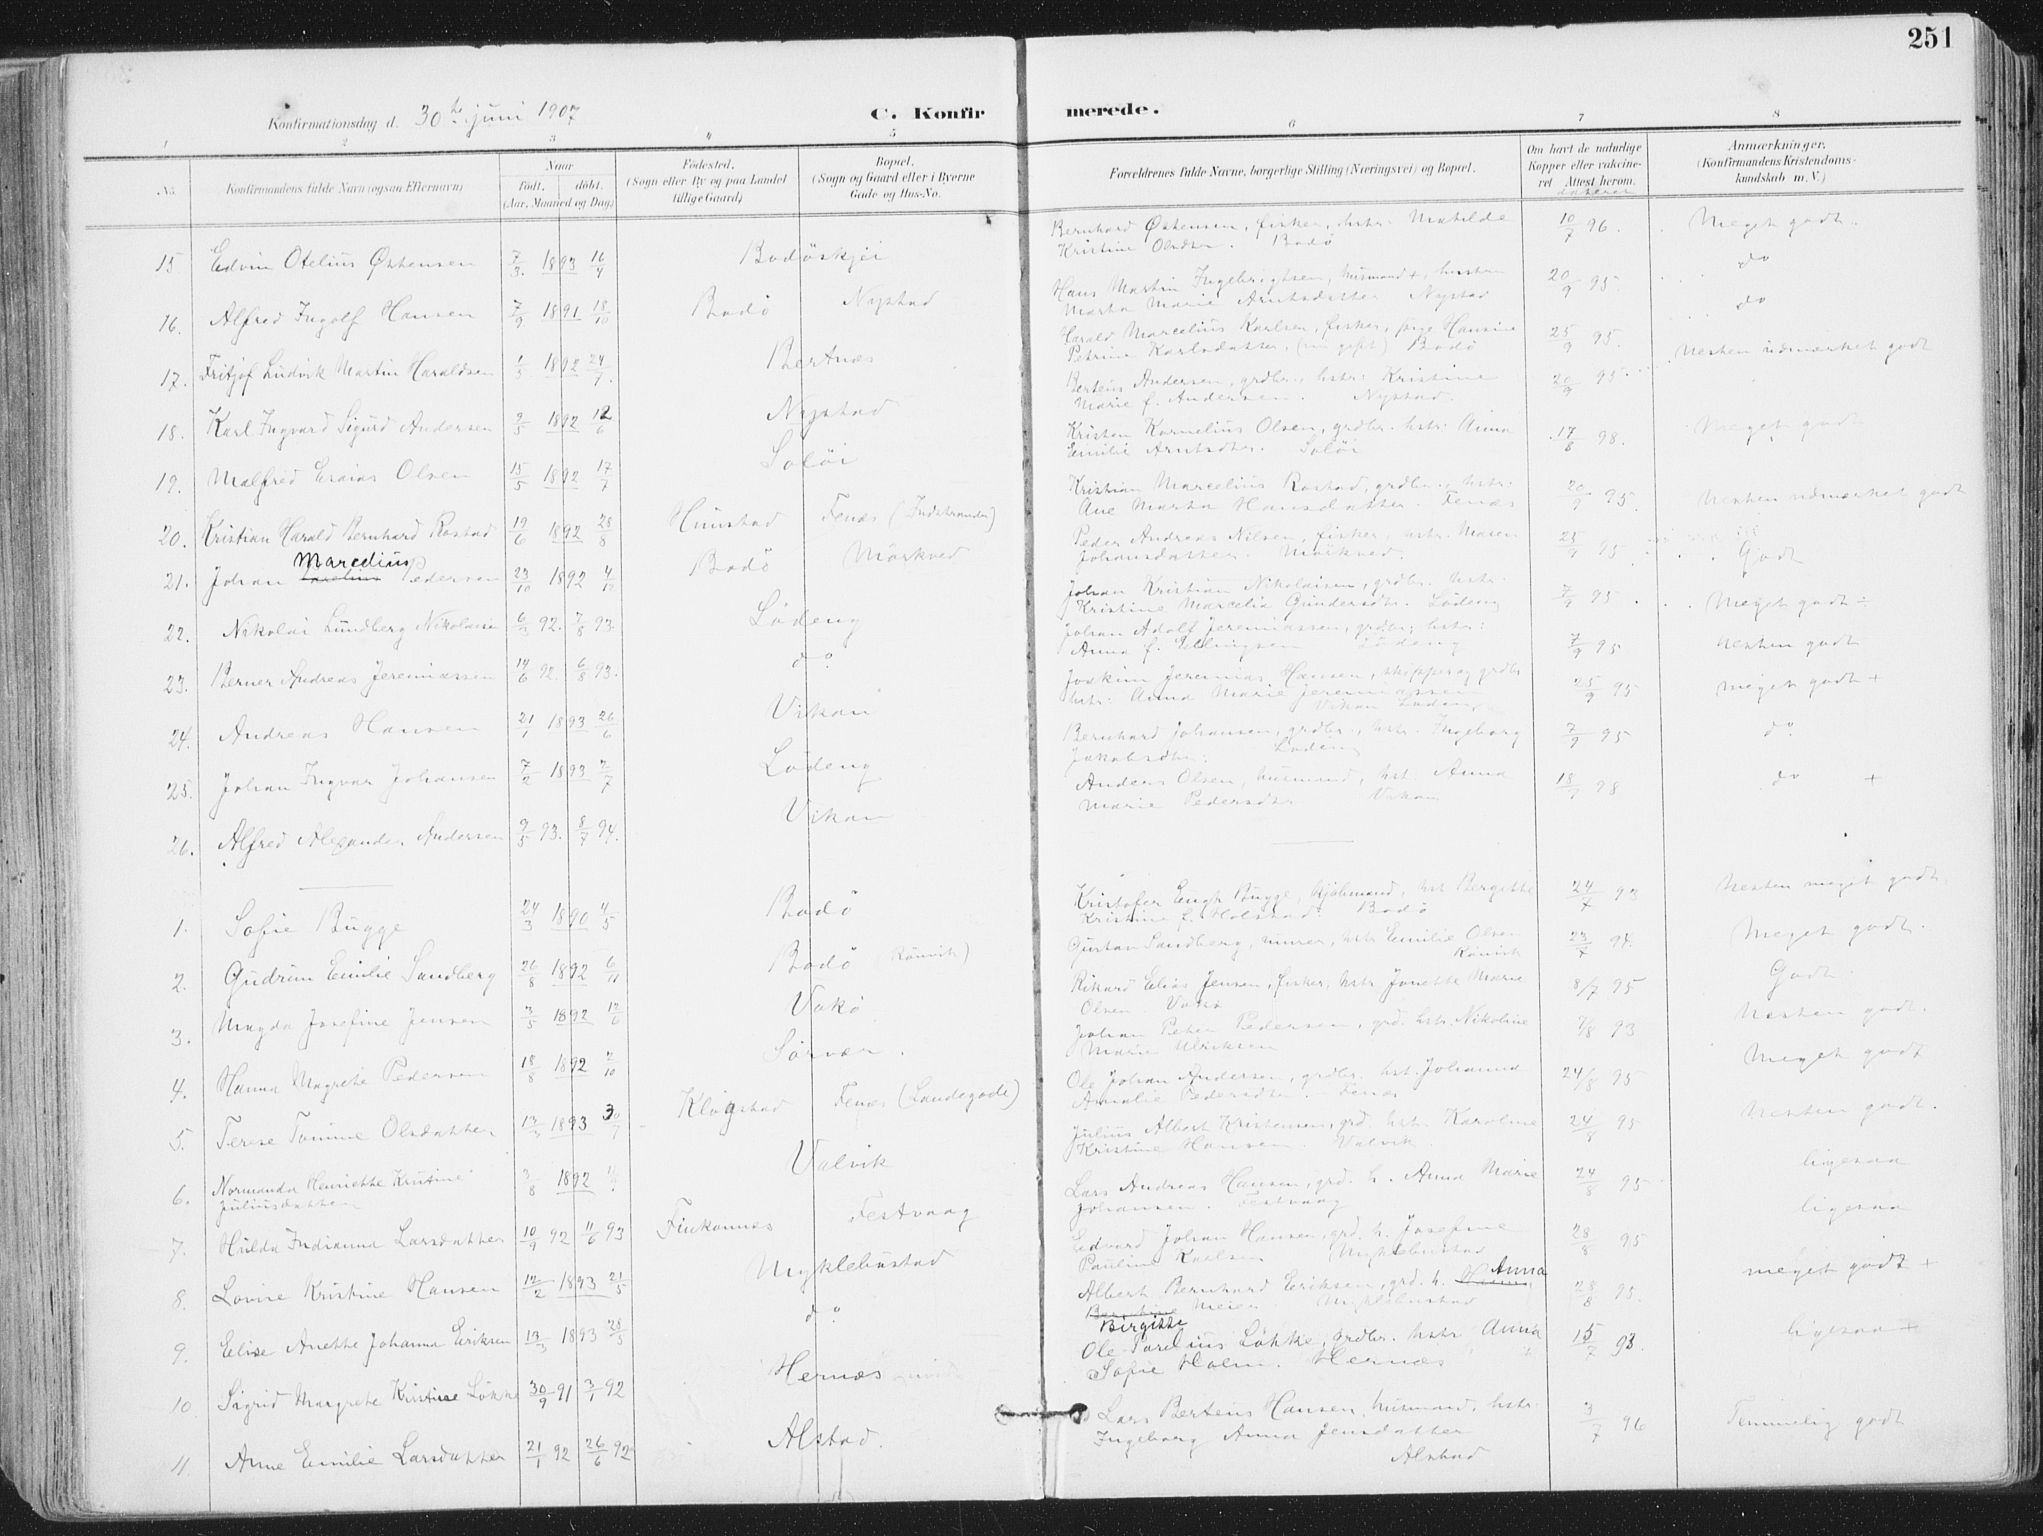 251
Konfirmationsdag d. 30te juni 1907
C. Konfirmerede.
1 2 3 4 5 6 7 8
No. Konfirmandens fulde Navn (ogsaa Efternavn) Naar født. døbt. (Aar, Maaned og Dag) Fødested. (Sogn eller By og paa Landet tillige Gaard) Bopæl. (Sogn og Gaard eller i Byerne Gade og Hus-No. Forældrenes fulde Navne, borgerlige Stilling (Næringsvei) og Bopæl. Om havt de naturlige Kopper eller vakcineret. Attest herom. Anmærkninger. (Konfirmandens Kristendomskundskab m. V.)
15 Edvin Otelius Østensen 7/3 1893 16/4 Bodöskjei Bernhard Østensen, fisker, hstr. Matilde Kristine Olsdtr. Bodø 10/7 96. Meget godt.
16. Alfred Ingolf Hansen 7/9 1891 18/10 Bodø Nystad Hans Martin Ingebrigtsen, husmand +, hustru Marta Marie Arntsdatter Nystad 20/9 95. do
17. Fritjof Ludvik Martin Haraldsen 1/5 1892 24/7. Bertnæs Harald Marcelius Karlsen, fisker, pige Hansine Petrine Karlsdatter, (nu gift) Bodø 25/9 95. do
18. Karl Ingvard Sigurd Andersen 2/5 1892 12/6 Nystad Berteus Andersen, grdbr., hstr: Kristine Marie f. Andersen. Nystad. 20/9 95. Nesten udmærket godt
19. Malfred Esaias Olsen 15/5 1892 17/7 Soløi Kristen Kornelius Olsen, grdbr. hstr: Anna Emilie Arntsdtr. Soløi 17/8 98. Meget godt
20. Kristian Harald Bernhard Rostad 19/6 1892 28/8 Hunstad Fenæs (Indstranden) Kristian Marcelius Rostad, grdbr., hstr: Ane Marta Hansdatter. Fenæs 20/9 95. Nesten udmærket godt
21. Johan Marcelius Pedersen 23/10 1892 4/12 Bodø Mörkved Peder Andreas Nilsen, fisker, hstr. Maren Johansdatter. Mörkved. 25/9 95. Godt
22. Nikolai Lundberg Nikolaisen 6/3 92. 7/8 93. Lödeng Johan Kristian Nikolaisen, grdbr. hstr. Kristine Marcelia Gundersdtr. Lödeng 7/9 95. Meget godt ÷
23. Berner Andreas Jeremiassen 14/6 92. 6/8 93. do Johan Adolf Jeremiassen, grdbr., hstr: Anna f. Ellingsen Lödeng 7/9 95 Nesten godt
24. Andreas Hansen 21/1 1893 26/6 Vikan Joakim Jeremias Hansen, skipper og grdbr hstr: Anna Marie Jeremiassen Vikan Lödeng 25/9 95 meget godt +
25. Johan Ingvar Johansen 7/2 1893 2/7 Lödeng Bernhard Johansen, grdbr., hstr. Ingeborg Jakobsdtr. Lödeng 7/9 95 do
26. Alfred Alexander Andersen 9/5 93. 8/7 94. Vikan Anders Olsen, husmand, hst: Anna Marie Pedersdtr Vikan 18/9 98 do +
1. Sofie Bugge 24/3 1890 4/5 Bodø Kristofer Engh Bugge, kjöbmand, hst Bergitte Kristine f. Holstad. Bodø 24/7 93 Nesten meget godt.
2. Gudrun Emilie Sandberg 26/8 1892 6/11 Bodø (Rönvik) Gustav Sandberg, murer, hstr Emilie Olsen Rönvik 23/7 94. Meget godt.
3. Magda Josefine Jensen 3/5 1892 12/6 Vakø Rikard Elias Jensen, fisker, hstr Jonette Marie Olsen. Vakø 8/7 95 Godt.
4. Hanna Magrete Pedersen 18/8 1892 2/10 Sörvær. Johan Peter Pedersen, grd. hstr. Nikoline Marie Ulriksen 7/8 93 Nesten godt.
5. Terese Tomine Olsdatter 13/3 1893 30/7 Klögstad Fenæs (Landegode) Ole Johan Andersen, grdbr. hst. Johanna Amalie Pedersdtr. Fenæs 24/8 95 Meget godt
6. Normanda Henriette Kristine Juliusdatter 3/8 1892 Valvik Julius Albert Kristensen, grd. hstr. Karoline Kristine Hansen. Valvik. 24/8 95 Nesten godt.
7. Hulda Indianna Larsdatter 10/9 92 11/6 93 Finkonnæs Festvaag Lars Andreas Hansen, grd. h. Anna Marie Johansen. Festvaag 24/8 95. ligesaa
8. Lovise Kristine Hansen 12/2 1893 21/5 Myklebustad Edvard Johan Hansen, grd. h. Josefine Pauline Karlsen Myklebustad 28/8 95 ligesaa
9. Elise Anette Johanna Eriksen 13/3 1893 28/5 do Albert Bernhard Eriksen, grd. h. Anna Birgitte Meier. Myklebustad 28/8 95. meget godt +
10. Sigrid Margrete Kristine Lökke 30/9 91 3/1 92 Hernæs Ole Parelius Löhke, grdbr. hstr Anna Sofie Holm. Hernæs 15/7 93. ligesaa +
11. Anne Emilie Larsdatter 21/1 92 26/6 92 Alstad. Lars Berteus Hansen, husmand, hstr. Ingeborg Anna Jensdatter Alstad 3/7 96 Temmelig godt